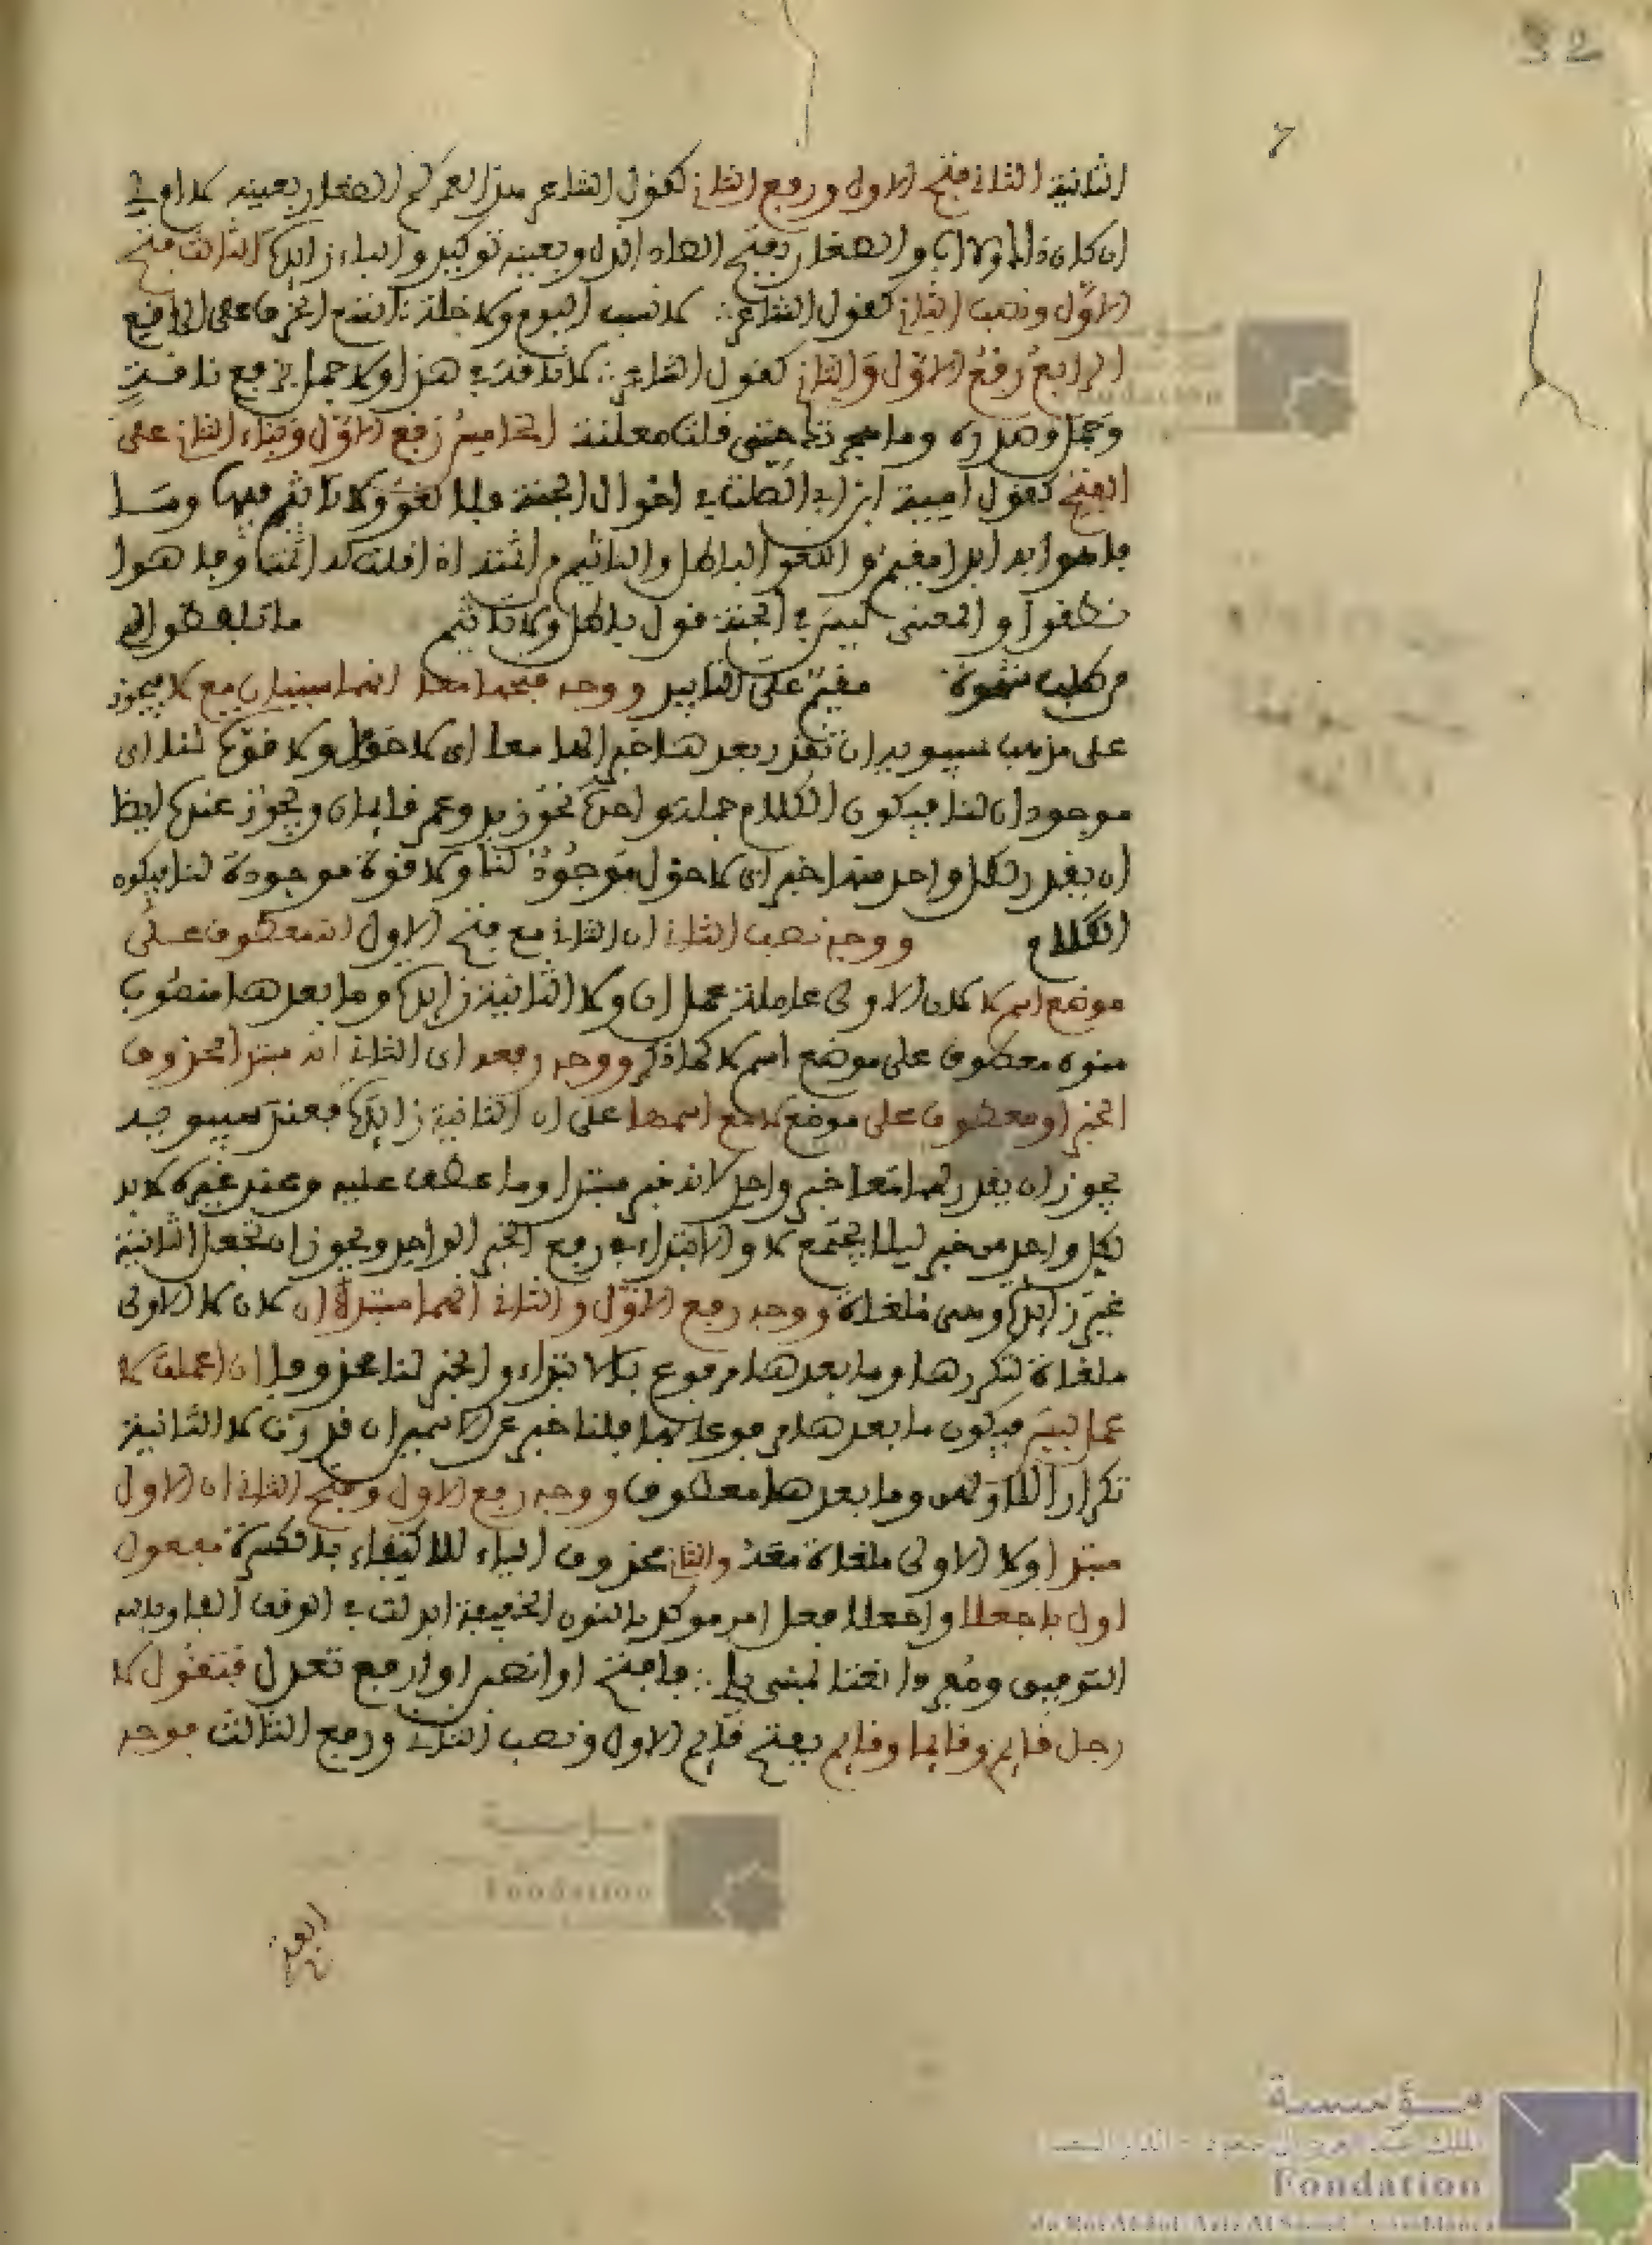 32
الثانية الثاني فتح الاول ورفع الثاني كقول الشاعر هذا لعمركم الصغار بعينه لا ام لي
ان كان ذاك ولا اب والصغار بفتح الصاد الذل وبعينه توكيد والباء زايدة الثالث فتح
الاول ونصب الثاني كقول الشاعر لا نسب اليوم ولا خلة اتسع الخرق على الراقع
الرابع رفع الاول والثاني كقول الشاعر لا ناقة في هذا ولا جمل برفع ناقة
وجمل وصدره وما هجرتك حتى قلت معلنة الخامس رفع الاول وبناء الثاني على
الفتح كقول امية ابن ابي الصلت في احوال الجنة فلا لغو ولا تاثيم فيها وما
فاهوا به ابدا مقيم واللغو الباطل والتاثيم من اثمته اذا قلت له اثمت وفاهوا
نطقوا والمعنى ليس في الجنة قول باطل ولا تاثيم ما تلفظوا به
من طلب شهوة مقيم على التابيد ووجه فتحهما معا انهما مبنيان مع لا فيجوز
على مذهب سيبويه ان تقدر بعدهما خبرا لهما معا اى لا حول ولا قوة لنا اى
موجودان لنا فيكون الكلام جملة واحدة نحو زيد وعمر قايمان ويجوز عنده ايضا
ان يقدر لكل واحد منهما خبر اى لا حول موجود لنا ولا قوة موجودة لنا فيكون
الكلام ووجه نصب الثاني ان الثاني مع فتح الاول انه معطوف على
موضع اسم لا لان الاولى عاملة عمل ان ولا الثانية زايدة وما بعدها منصوب
منون معطوف على موضع اسم لا كما ذكر ووجه رفعه اى الثاني انه مبتدا محذوف
الخبر او معطوف على موضع لا مع اسمها على ان الثانية زايدة فعند سيبويه
يجوز ان يقدر لهما معا خبر واحد لانه خبر مبتدا وما عطف عليه وعند غيره لا بد
لكل واحد من خبر ليلا يجتمع لا والابتداء في رفع الخبر الواحد ويجوز ان تجعل الثانية
غير زايدة وهى ملغاة ووجه رفع الاول والثاني انهما مبتدان لان لا الاولى
ملغاة لتكررها وما بعدها مرفوع بالابتداء والخبر لنا محذوفا ان اعملت لا
عمل ليس فيكون ما بعدها مرفوعا بها قلنا خبر عن الاسمين ان قدرت لا الثانية
تكرار للاولى وما بعدها معطوف ووجه رفع الاول وفتح الثاني ان الاول
مبتدا ولا الاولى ملغاة والثاني محذوف الياء للاكتفاء بالكسرة مفعول
اول باجعلا واجعلا فعل امر موكد بالنون الخفيفة ابدلت في الوقف الفا وبالله
التوفيق ومفردا نعتا لمبني يلي فافتح او انصبن او ارفع تعدل فتقول لا
رجل قايم وقايما وقايم بفتح قايم الاول ونصب الثاني ورفع الثالث فوجه
الفتح
مؤسسة
Fondation
du Roi Abdul Aziz Al Saoud Casablanca